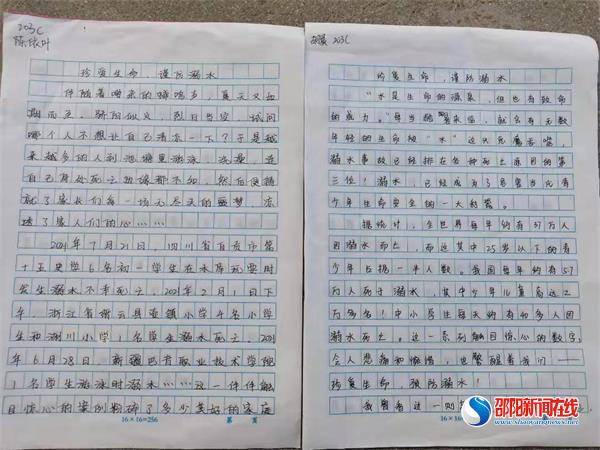 203C
陈依叶
珍爱生命，谨防溺水
伴随着嘈杂的蝉鸣声，夏天又如
期而至。骄阳似火，烈日当空，试问
哪个人不想让自己清凉一下？于是越
来越多的人到池塘里游泳、洗澡，连
自己身处死亡边缘都不知，然后便铸
就了家长们每一场无尽天的噩梦，凉
透了家人们的心……
2021年7月21日，四川省自贡市第
十五中学6名初一学生在水库玩耍时
发生溺水不幸死亡。2021年2月1日下
午，浙江省
小学4名小学
生和
川小学1名学生溺水死亡。2021
年6月28日，新疆巴音职业技术学院
1名学生游泳时溺水……这一件件触
目惊心的案例粉碎了多少美好的家庭
16×16=256
第 页
203C
珍爱生命，谨防溺水
“水是生命的源泉，但也有致命
的威力。”每当酷暑来临，就会有无数
年轻的生命被“水”这大恶魔吞噬，
溺水事故已经排在各种死亡原因的第
三位！溺水，已经成为了危害当代青
少年生命安全的一大刽子手。
据统计，全世界每年约有37万人
因溺水而亡，而这其中25岁以下的青
少年占据一半人数。我国每年约有5.7
万人死于溺水，其中少年儿童高达2
万多名！中小学生每天约有40多人因
溺水死亡。这一系列触目惊心的数字，
令人悲痛和惋惜，也警醒着我们——
珍爱生命，预防溺水！
我看着这一则
16×16
邵阳新闻在线
www.shaoyangnews.net